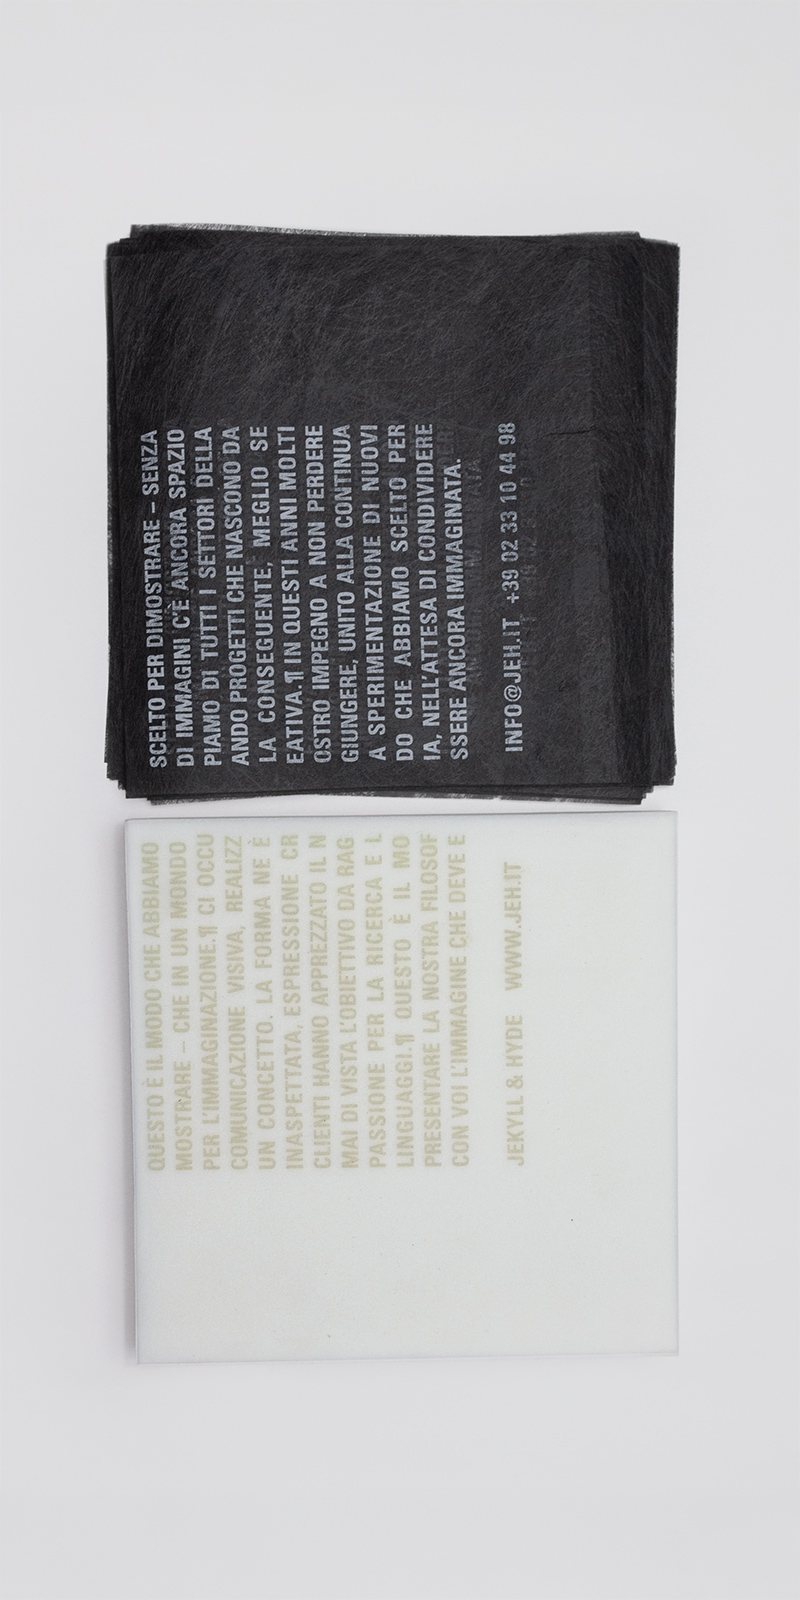 QUESTO È IL MODO CHE ABBIAMO SCELTO PER DIMOSTRARE – SENZA
MOSTRARE – CHE IN UN MONDO DI IMMAGINI C'È ANCORA SPAZIO
PER L'IMMAGINAZIONE.¶ CI OCCUPIAMO DI TUTTI I SETTORI DELLA
COMUNICAZIONE VISIVA, REALIZZANDO PROGETTI CHE NASCONO DA
UN CONCETTO. LA FORMA NE È LA CONSEGUENTE, MEGLIO SE
INASPETTATA, ESPRESSIONE CREATIVA.¶ IN QUESTI ANNI MOLTI
CLIENTI HANNO APPREZZATO IL NOSTRO IMPEGNO A NON PERDERE
MAI DI VISTA L'OBIETTIVO DA RAGGIUNGERE, UNITO ALLA CONTINUA
PASSIONE PER LA RICERCA E LA SPERIMENTAZIONE DI NUOVI
LINGUAGGI.¶ QUESTO È IL MODO CHE ABBIAMO SCELTO PER
PRESENTARE LA NOSTRA FILOSOFIA, NELL'ATTESA DI CONDIVIDERE
CON VOI L'IMMAGINE CHE DEVE ESSERE ANCORA IMMAGINATA.
JEKYLL & HYDE WWW.JEH.IT INFO@JEH.IT +39 02 33 10 44 98